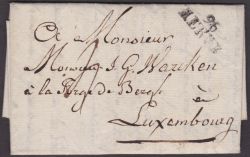 A Monsieur
Monsieur J. G. Warcken
à la Forge de Berg
à
Luxembourg
96